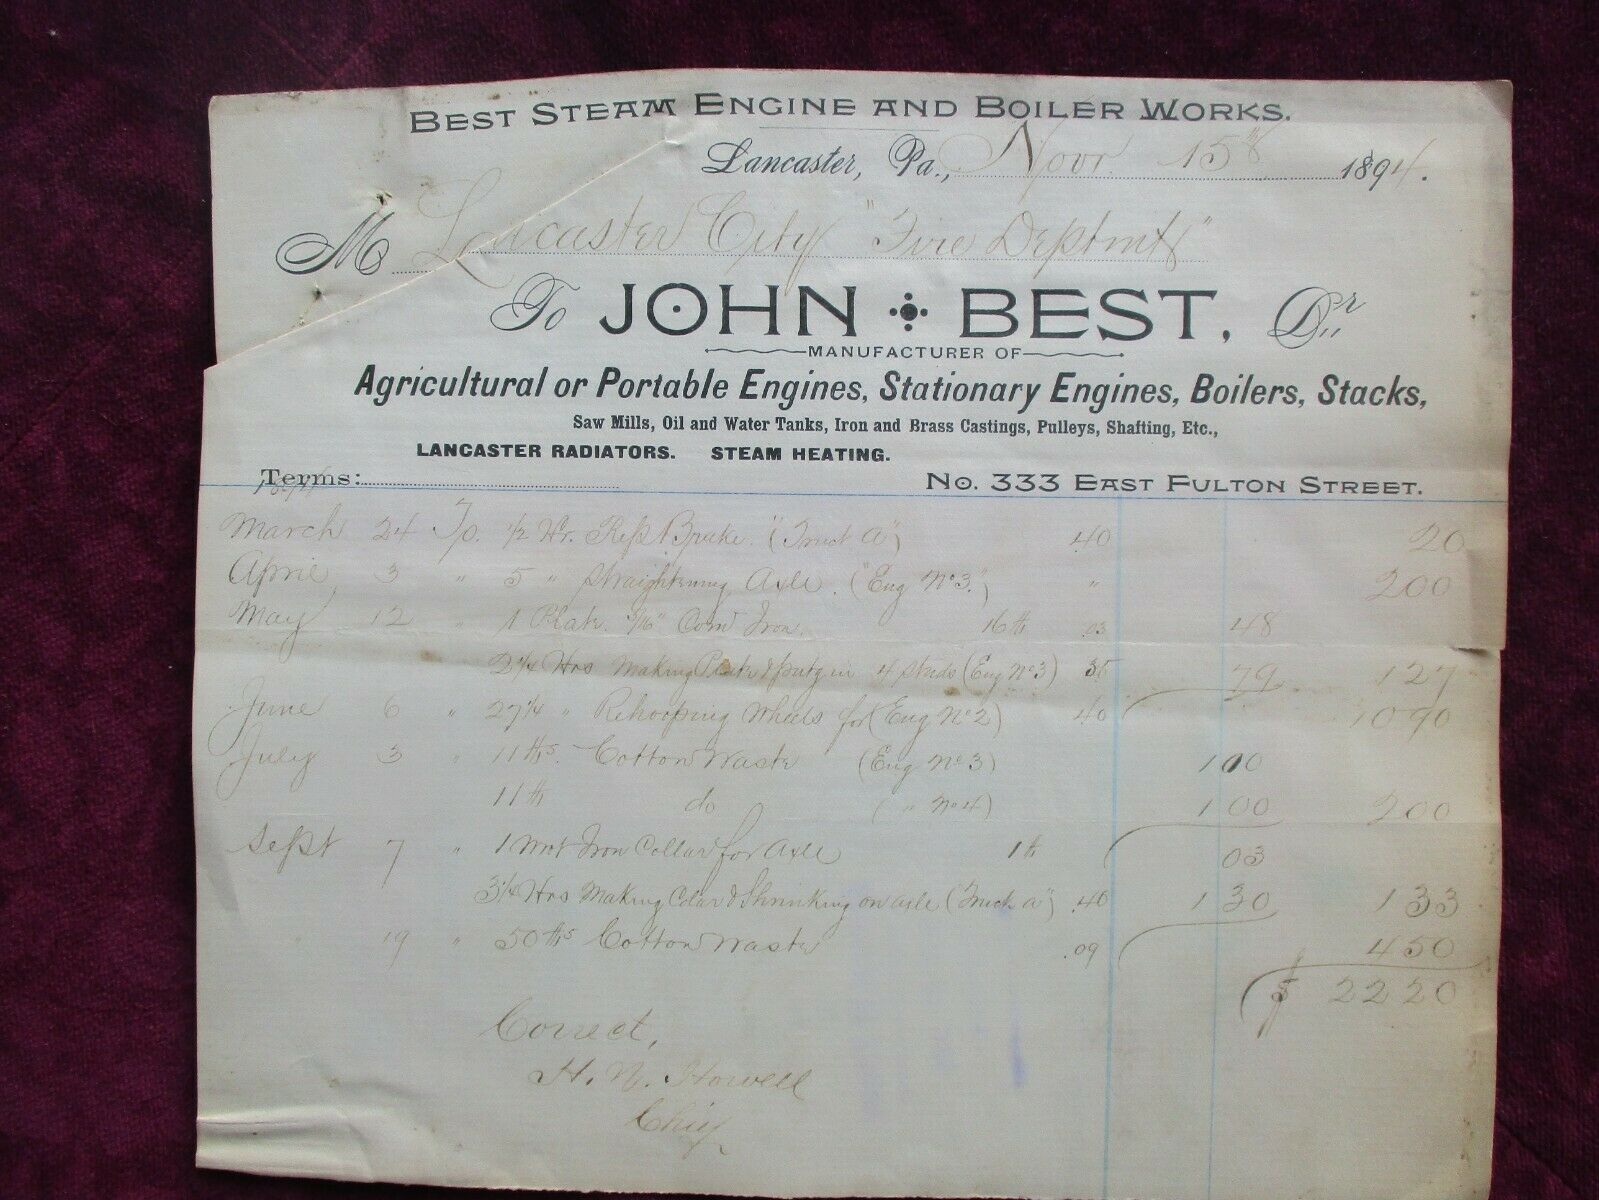 BEST STEAM ENGINE AND BOILER WORKS.
Lancaster, Pa., Novr. 15th 1894.
M Lancaster City "Fire Deptmt"
To JOHN BEST, Dr
MANUFACTURER OF
Agricultural or Portable Engines, Stationary Engines, Boilers, Stacks,
Saw Mills, Oil and Water Tanks, Iron and Brass Castings, Pulleys, Shafting, Etc.,
LANCASTER RADIATORS. STEAM HEATING.
Terms: No. 333 EAST FULTON STREET.
March 24 To. 1/2 Hr. Rep Brake. (Truck A") .40 20
April 3 " 5 " Straightening Axle. ("Eng No 3.") " 200
May 12 " 1 Plate 3/16" Com Iron. 16 lb .03 48
2 1/4 Hrs Making Plate & putg in 4 studs (Eng No 3) 35 79 127
June 6 " 27 1/4 " Rehooping Wheels for (Eng No 2) .40 1090
July 3 " 11 lbs. Cotton Waste (Eng No 3) 100
11 lb do ( " No 4) 100 200
Sept 7 " 1 Wrt Iron Collar for Axle 1 lb 03
3 1/4 Hrs Making Colar & Shrinking on axle (Truck A") .40 130 133
" 19 " 50 lbs Cotton Waste .09 450
$ 2220
Correct,
H. N. Howell
Chief